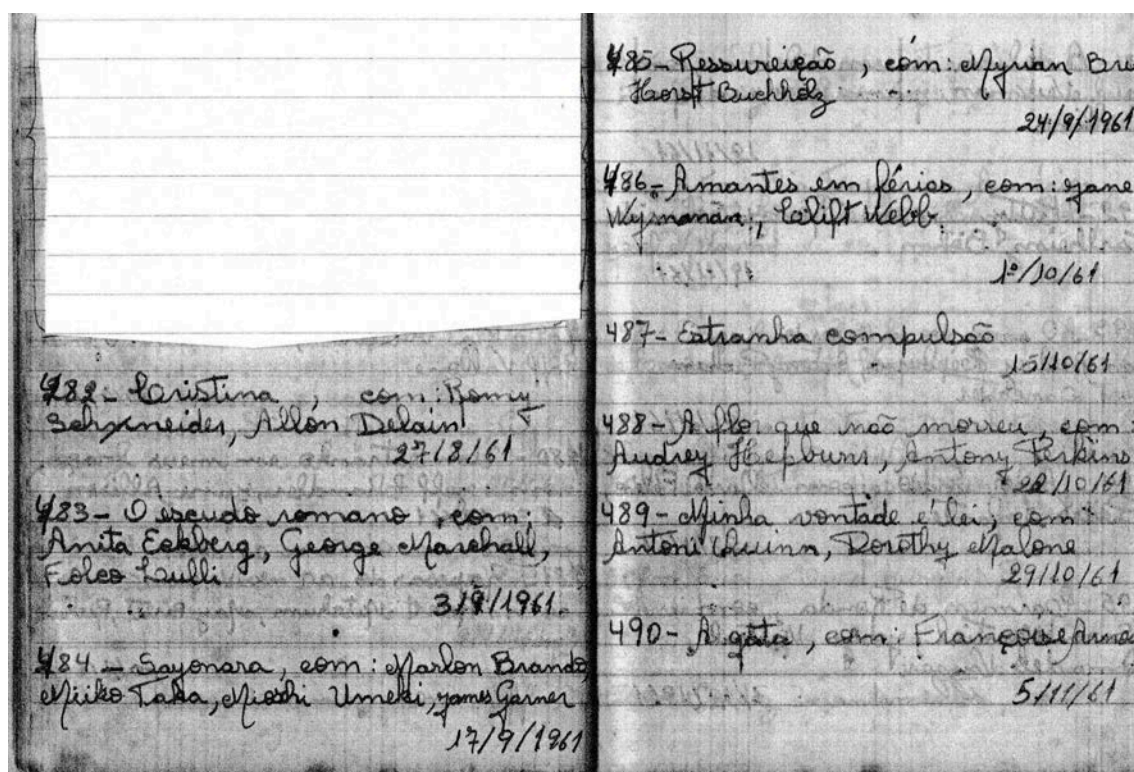 482 - Cristina, com: Romy
Schxneider, Allón Delain
27/8/61
483 - O escudo romano, com:
Anita Eckberg, George Marchall,
Folco Lulli
3/9/1961.
484 - Sayonara, com: Marlon Brando,
Miiko Taka, Mioshi Umeki, James Garner
17/9/1961
485 - Ressureição, com: Myrian Bru
Horst Buchholz
24/9/1961
486 - Amantes em férias, com: Jane
Wymanan, Clift Webb.
1º/10/61
487 - Estranha compulsão
15/10/61
488 - A flor que não morreu, com:
Audrey Hepburn, Antony Perkins
22/10/61
489 - Minha vontade é lei, com:
Antoni Quinn, Dorothy Malone
29/10/61
490 - A gata, com: Françoise
5/11/61